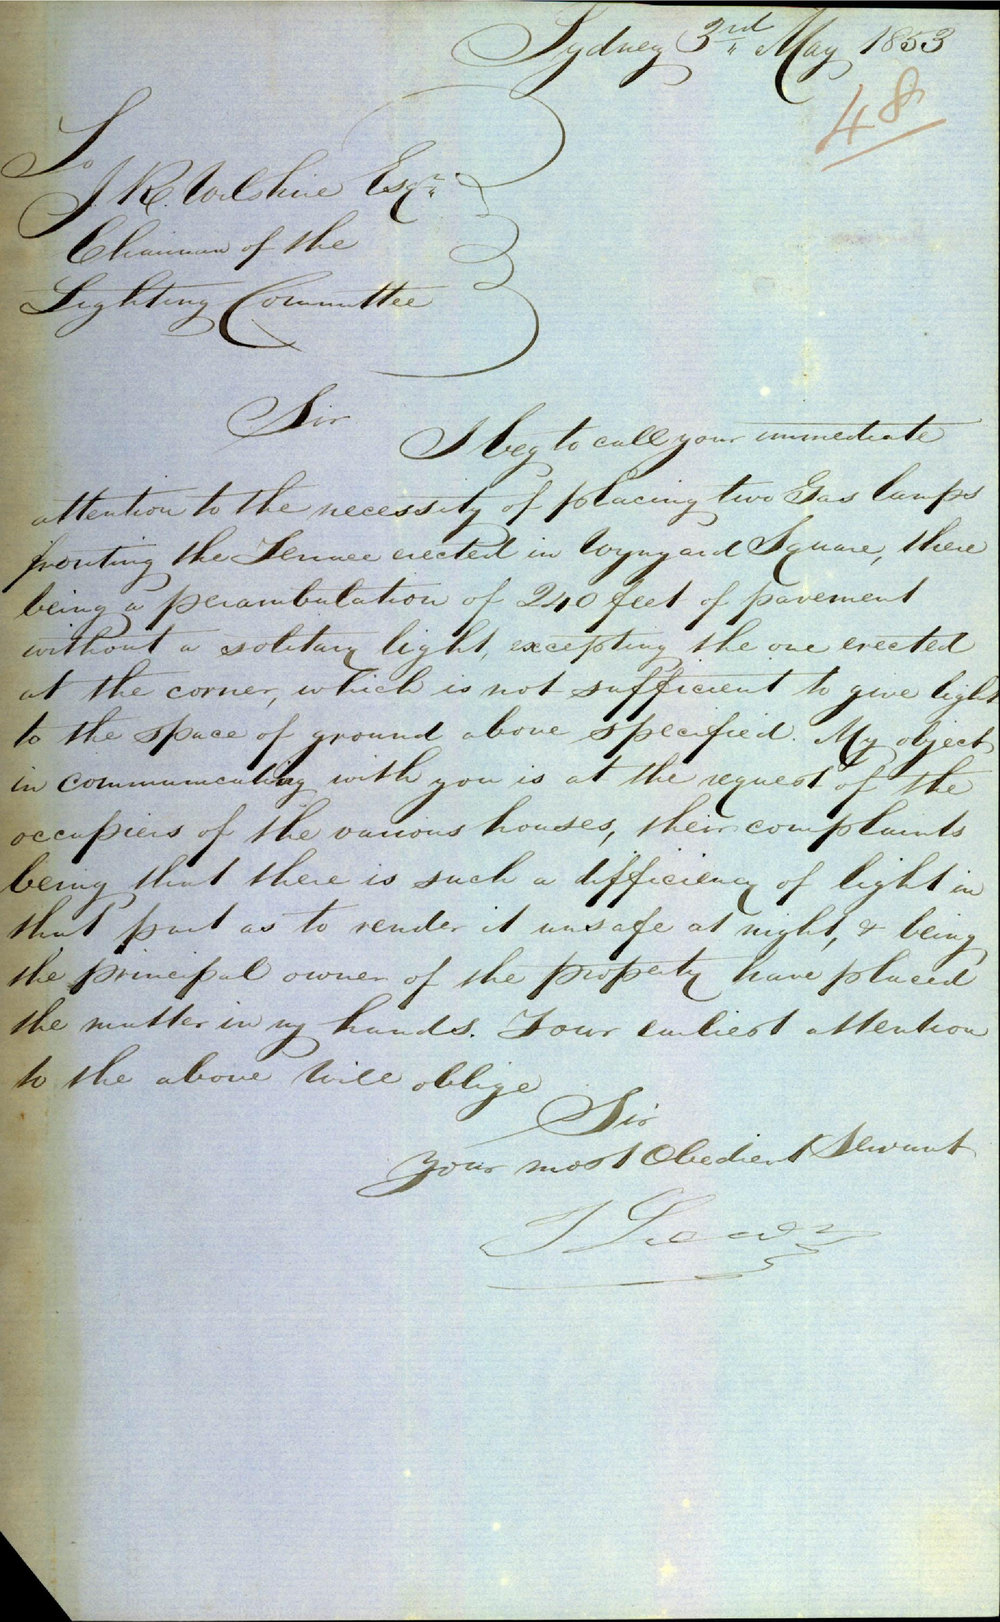 Sydney 3rd May 1853
48
To
J. R. Wilshire Esqr
Chairman of the
Lighting Committee
Sir
I beg to call your immediate
attention to the necessity of placing two Gas lamps
fronting the Terrace erected in Wynyard Square, there
being a perambulation of 240 feet of pavement
without a solitary light, excepting the one erected
at the corner, which is not sufficient to give light
to the space of ground above specified. My object
in communicating with you is at the request of the
occupiers of the various houses, their complaints
being that there is such a difficiency of light in
that part as to render it unsafe at night, & being
the principal owner of the property have placed
the matter in my hands. Your earliest attention
to the above will oblige
Sir
Your most Obedient Servant